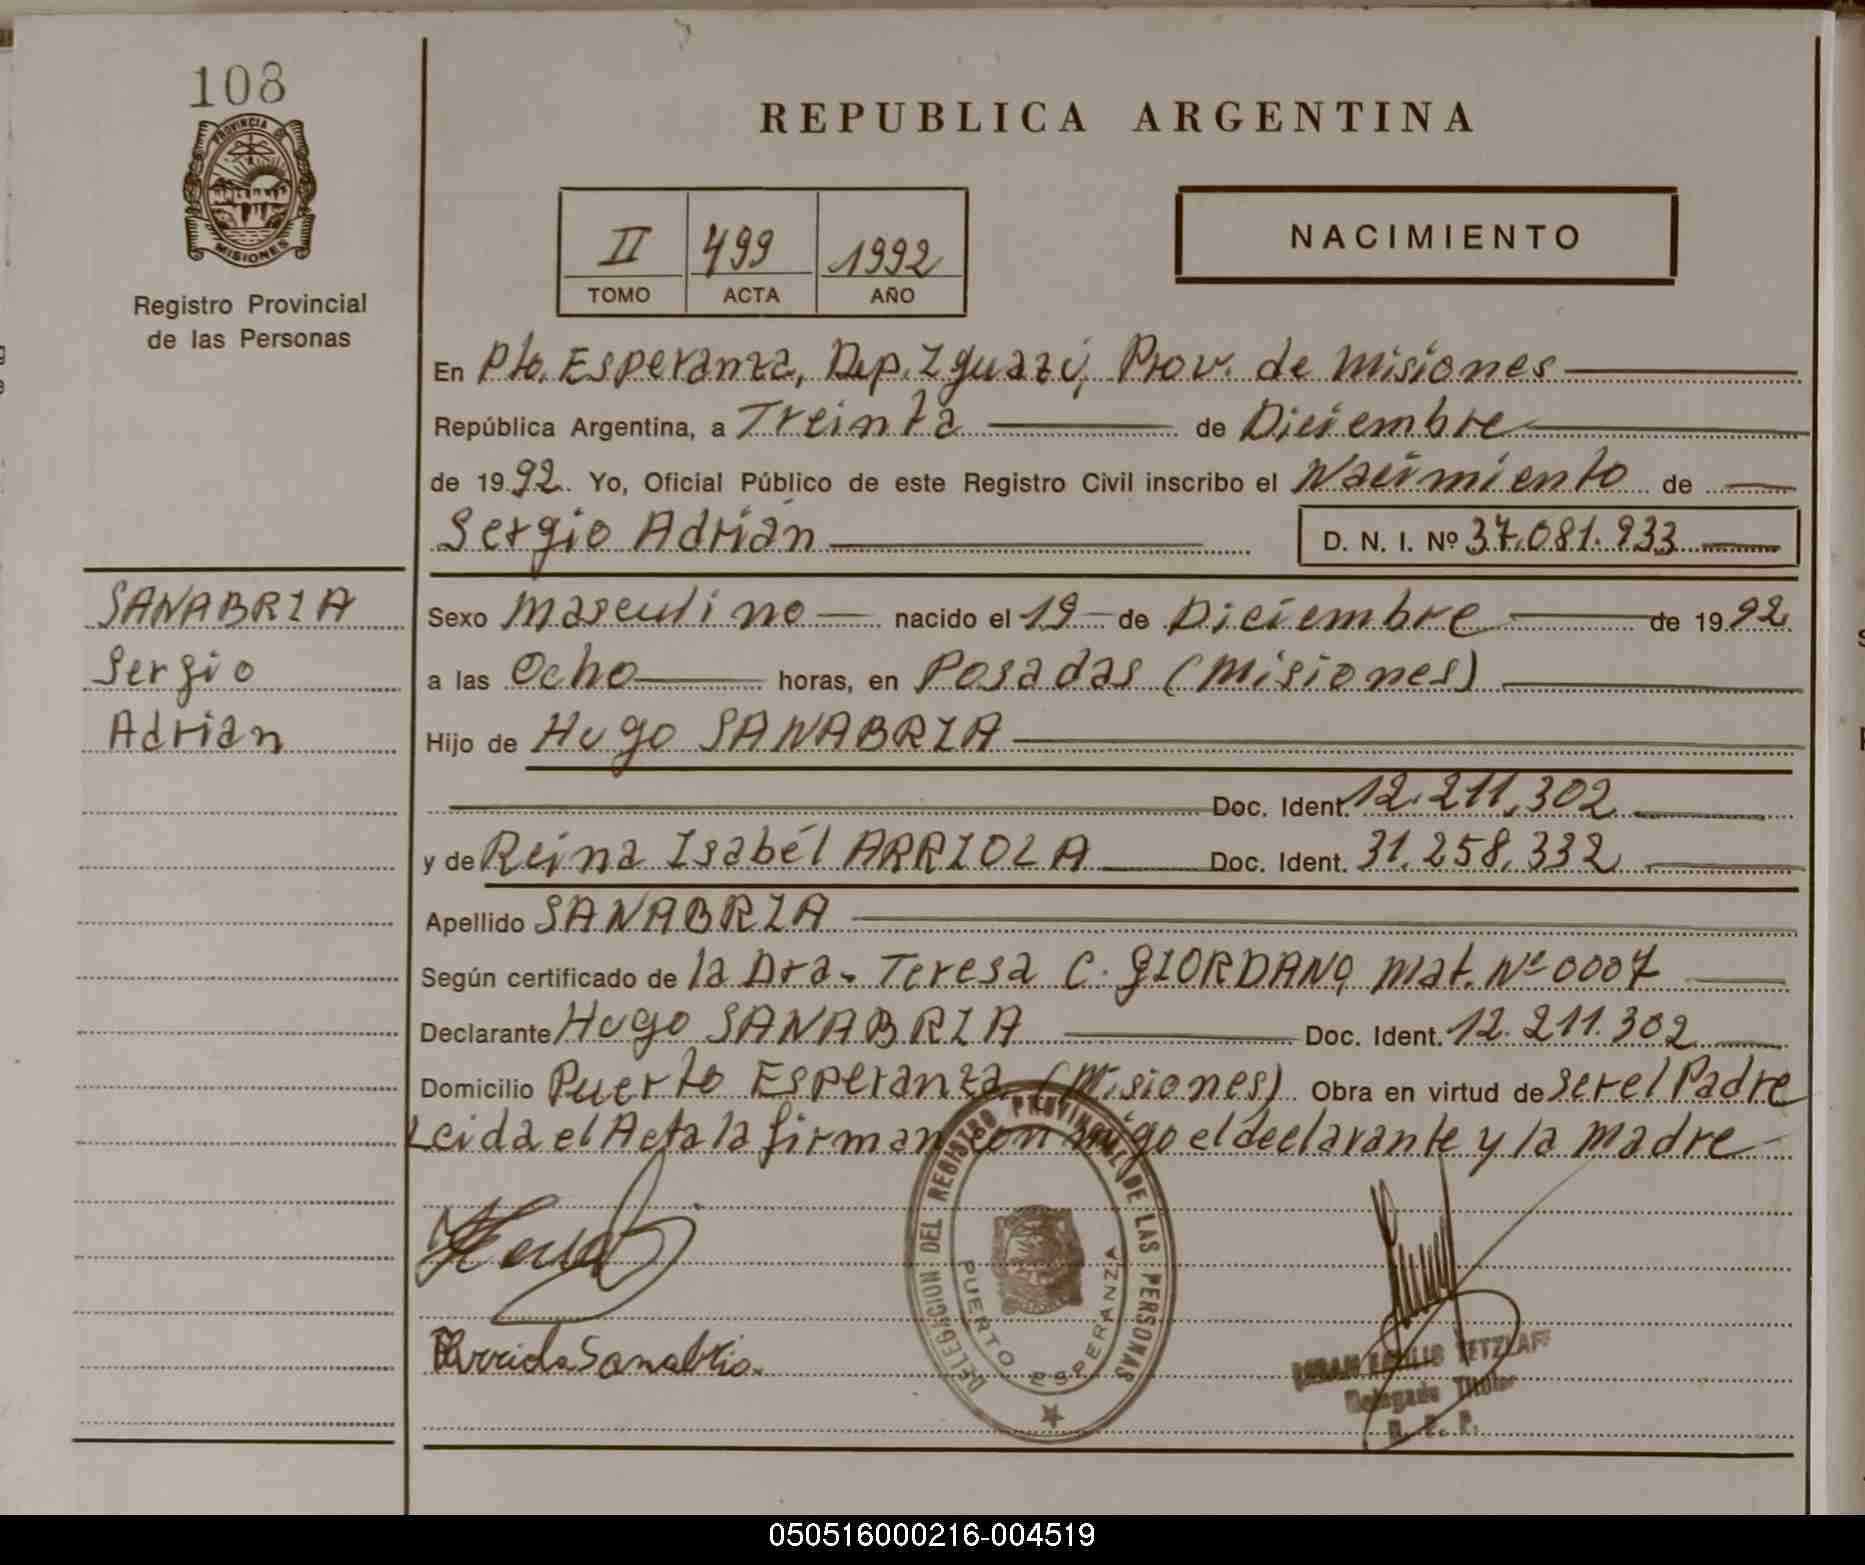 108
PROVINCIA DE
MISIONES
Registro Provincial
de las Personas
SANABRIA
Sergio
Adrián
REPUBLICA ARGENTINA
II 499 1992
TOMO ACTA AÑO
NACIMIENTO
En Pto. Esperanza, Dep. Iguazú, Prov. de Misiones
República Argentina, a Treinta de Diciembre
de 1992. Yo, Oficial Público de este Registro Civil inscribo el Nacimiento de
Sergio Adrián D. N. I. Nº 37.081.933
Sexo Masculino nacido el 19 de Diciembre de 1992
a las Ocho horas, en Posadas (Misiones)
Hijo de Hugo SANABRIA
Doc. Ident. 12.211.302
y de Reina Isabél ARRIOLA Doc. Ident. 31.258.332
Apellido SANABRIA
Según certificado de la Dra. Teresa C. GIORDANO, Mat. Nº 0007
Declarante Hugo SANABRIA Doc. Ident. 12.211.302
Domicilio Puerto Esperanza (Misiones). Obra en virtud de ser el Padre
Leida el Acta la firman conmigo el declarante y la Madre
DELEGACION DEL REGISTRO PROVINCIAL DE LAS PERSONAS
PUERTO ESPERANZA
Sanabria.
TETZLAFF
Delegado Titular
R. P. P.
050516000216-004519